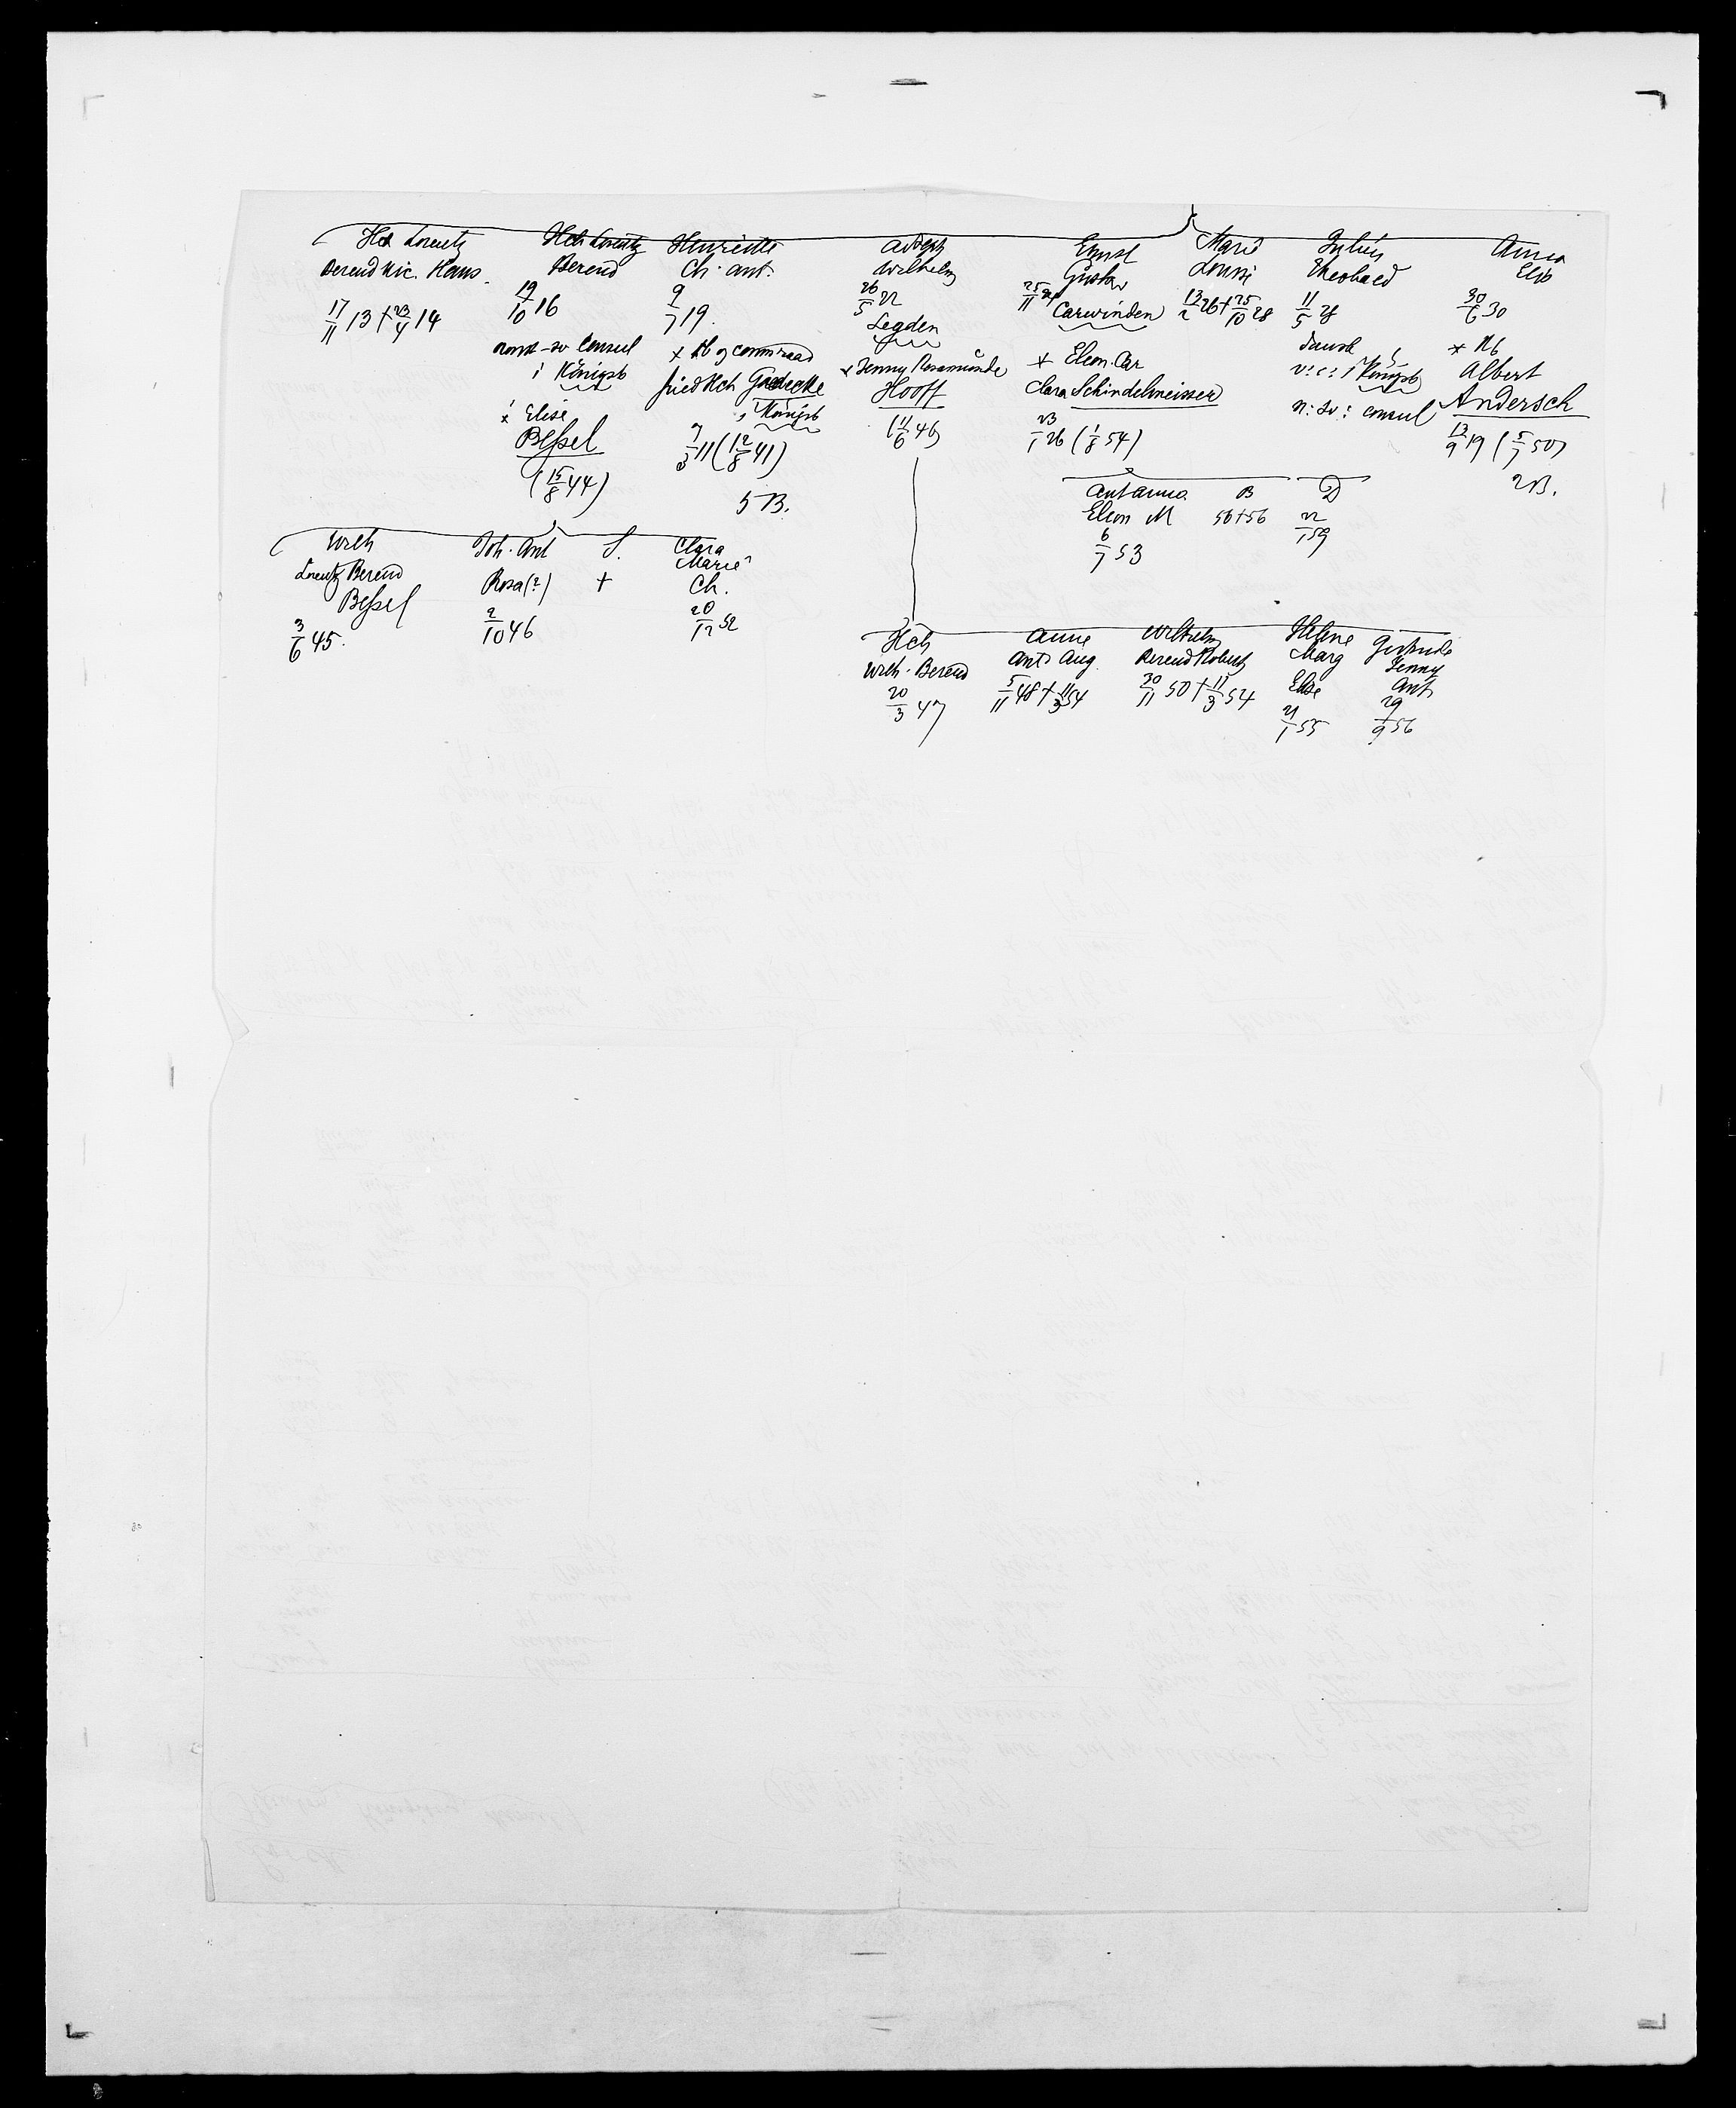 Hch Lorentz
Berend Nic. Hans.
17/11 13 † 23/4 14
Hch Lorentz
Berend
19/10 16
norsk-sv Consul
i Königsb
x Elise
Beßel
(15/8 44)
Henriette
Ch. Ant.
9/7 19.
x Kb og commraad
Friedr Hch Gaedecke
i Königsb
7/3 11 (12/8 41)
5 B.
Adolph
Wilhelm
26/5 22
Legden
x Jenny Rosamunde
Hooff
(11/6 46)
Ernst
Gustav
25/11
Carwinden
x Eleon. Car
Clara Schindelmeisser
23/1 26 (1/8 54)
Marie
Louise
13/2 26 † 25/10 28
Julius
Theobald
11/5 28
dansk
v: c: i Königsb
n: sv: consul
Anna
Elis
30/6 30
x Kb
Albert
Andersch
13/9 19 (5/7 50)
2 B.
Ant Anna
Eleon M
6/7 53
B
56 † 56
D
22/1 59
Wilh
Lorentz Berend
Beßel
3/6 45.
Joh. Ant
Rosa (?)
2/10 46
S.
†
Clara
Marie
Ch.
20/12 52
Hch
Wilh. Berend
20/3 47
Anne
Ant Aug.
5/11 48 † 11/3 54
Wilhelm
Berend Robert
30/11 50 † 11/3 54
Helene
Marg
Elise
21/1 55
Gertrude
Jenny
Ant
29/9 56